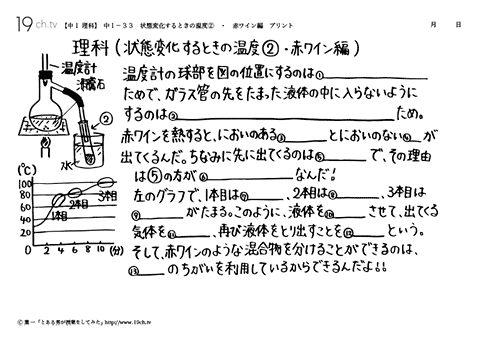 19ch.tv 【中1 理科】 中1-33 状態変化するときの温度② ・ 赤ワイン編 プリント 月 日
理科(状態変化するときの温度②・赤ワイン編)
温度計
沸騰石
②
水
温度計の球部を図の位置にするのは①
ためで、ガラス管の先をたまった液体の中に入らないように
するのは② ため。
赤ワインを熱すると、においのある③ とにおいのない④ が
出てくるんだ。ちなみに先に出てくるのは⑤ で、その理由
は⑤の方が⑥ なんだ!
左のグラフで、1本目は⑦ 、2本目は⑧ 、3本目は
⑨ がたまる。このように、液体を⑩ させて、出てくる
気体を⑪ 、再び液体をとり出すことを⑫ という。
そして、赤ワインのような混合物を分けることができるのは、
⑬ のちがいを利用しているからできるんだよ!!
(℃)
100
80
60
40
20
0 2 4 6 8 10 (分)
1本目
2本目
3本目
Ⓒ 葉一「とある男が授業をしてみた」http://www.19ch.tv